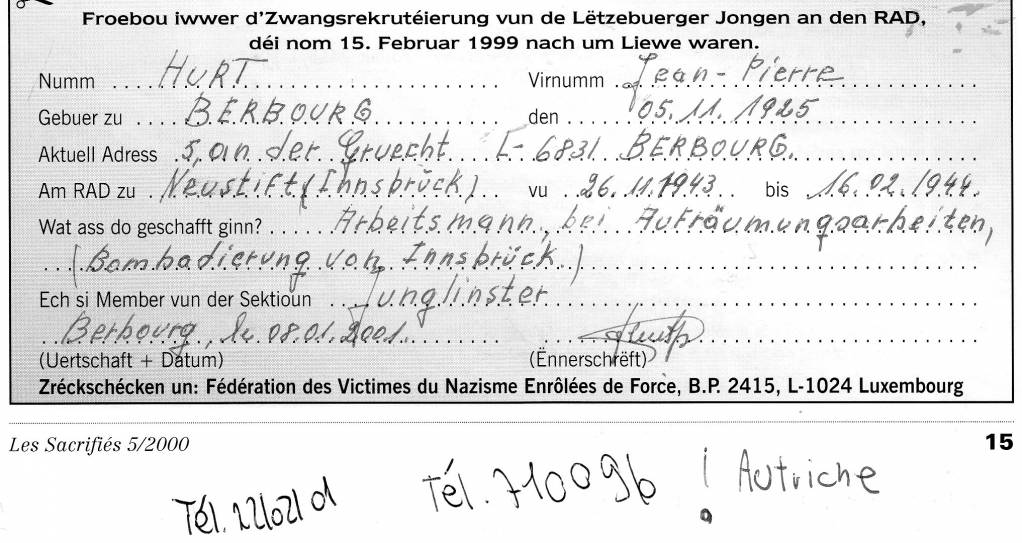 Froebou iwwer d'Zwangsrekrutéierung vun de Lëtzebuerger Jongen an den RAD,
déi nom 15. Februar 1999 nach um Liewe waren.
Numm HURT Virnumm Jean-Pierre
Gebuer zu BERBOURG den 05.11.1925
Aktuell Adress 5, an der Gruecht L-6831 BERBOURG.
Am RAD zu Neustift (Innsbrück) vu 26.11.1943 bis 16.02.1944.
Wat ass do geschafft ginn? Arbeitsmann, bei Aufräumungsarbeiten,
(Bombadierung von Innsbrück.)
Ech si Member vun der Sektioun Junglinster
Berbourg, le 08.01.2001.
(Uertschaft + Datum) (Ënnerschrëft)
Zréckschécken un: Fédération des Victimes du Nazisme Enrôlées de Force, B.P. 2415, L-1024 Luxembourg
Les Sacrifiés 5/2000 15
Tél. Tél. 710096 ! Autriche